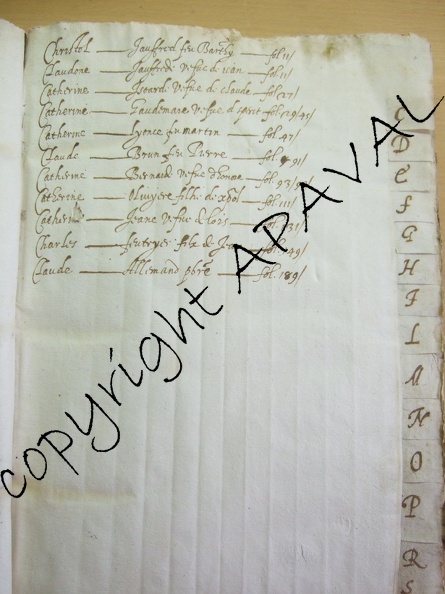 Christol Jauffred feu Barthy fol 11/
Claudone Jauffrede vefue de Jean fol 11/
Catherine Isoard vefue de claude fol 27/
Catherine Gaudemare vefue d'esprit
Catherine Lyonce feu martin fol. 47/
Claude Brun feu Pierre fol 91/
Catherine Bernard vefue fol. 93/
Catherine Olivyere filhe de xpol fol. 111/
Catherine Jeane vefue de loys 31/
Charles filz de 49/
Claude Allemand pbre fol. 189/
copyright APAVAL
C
D
E
F
G
H
I
L
M
N
O
P
R
S